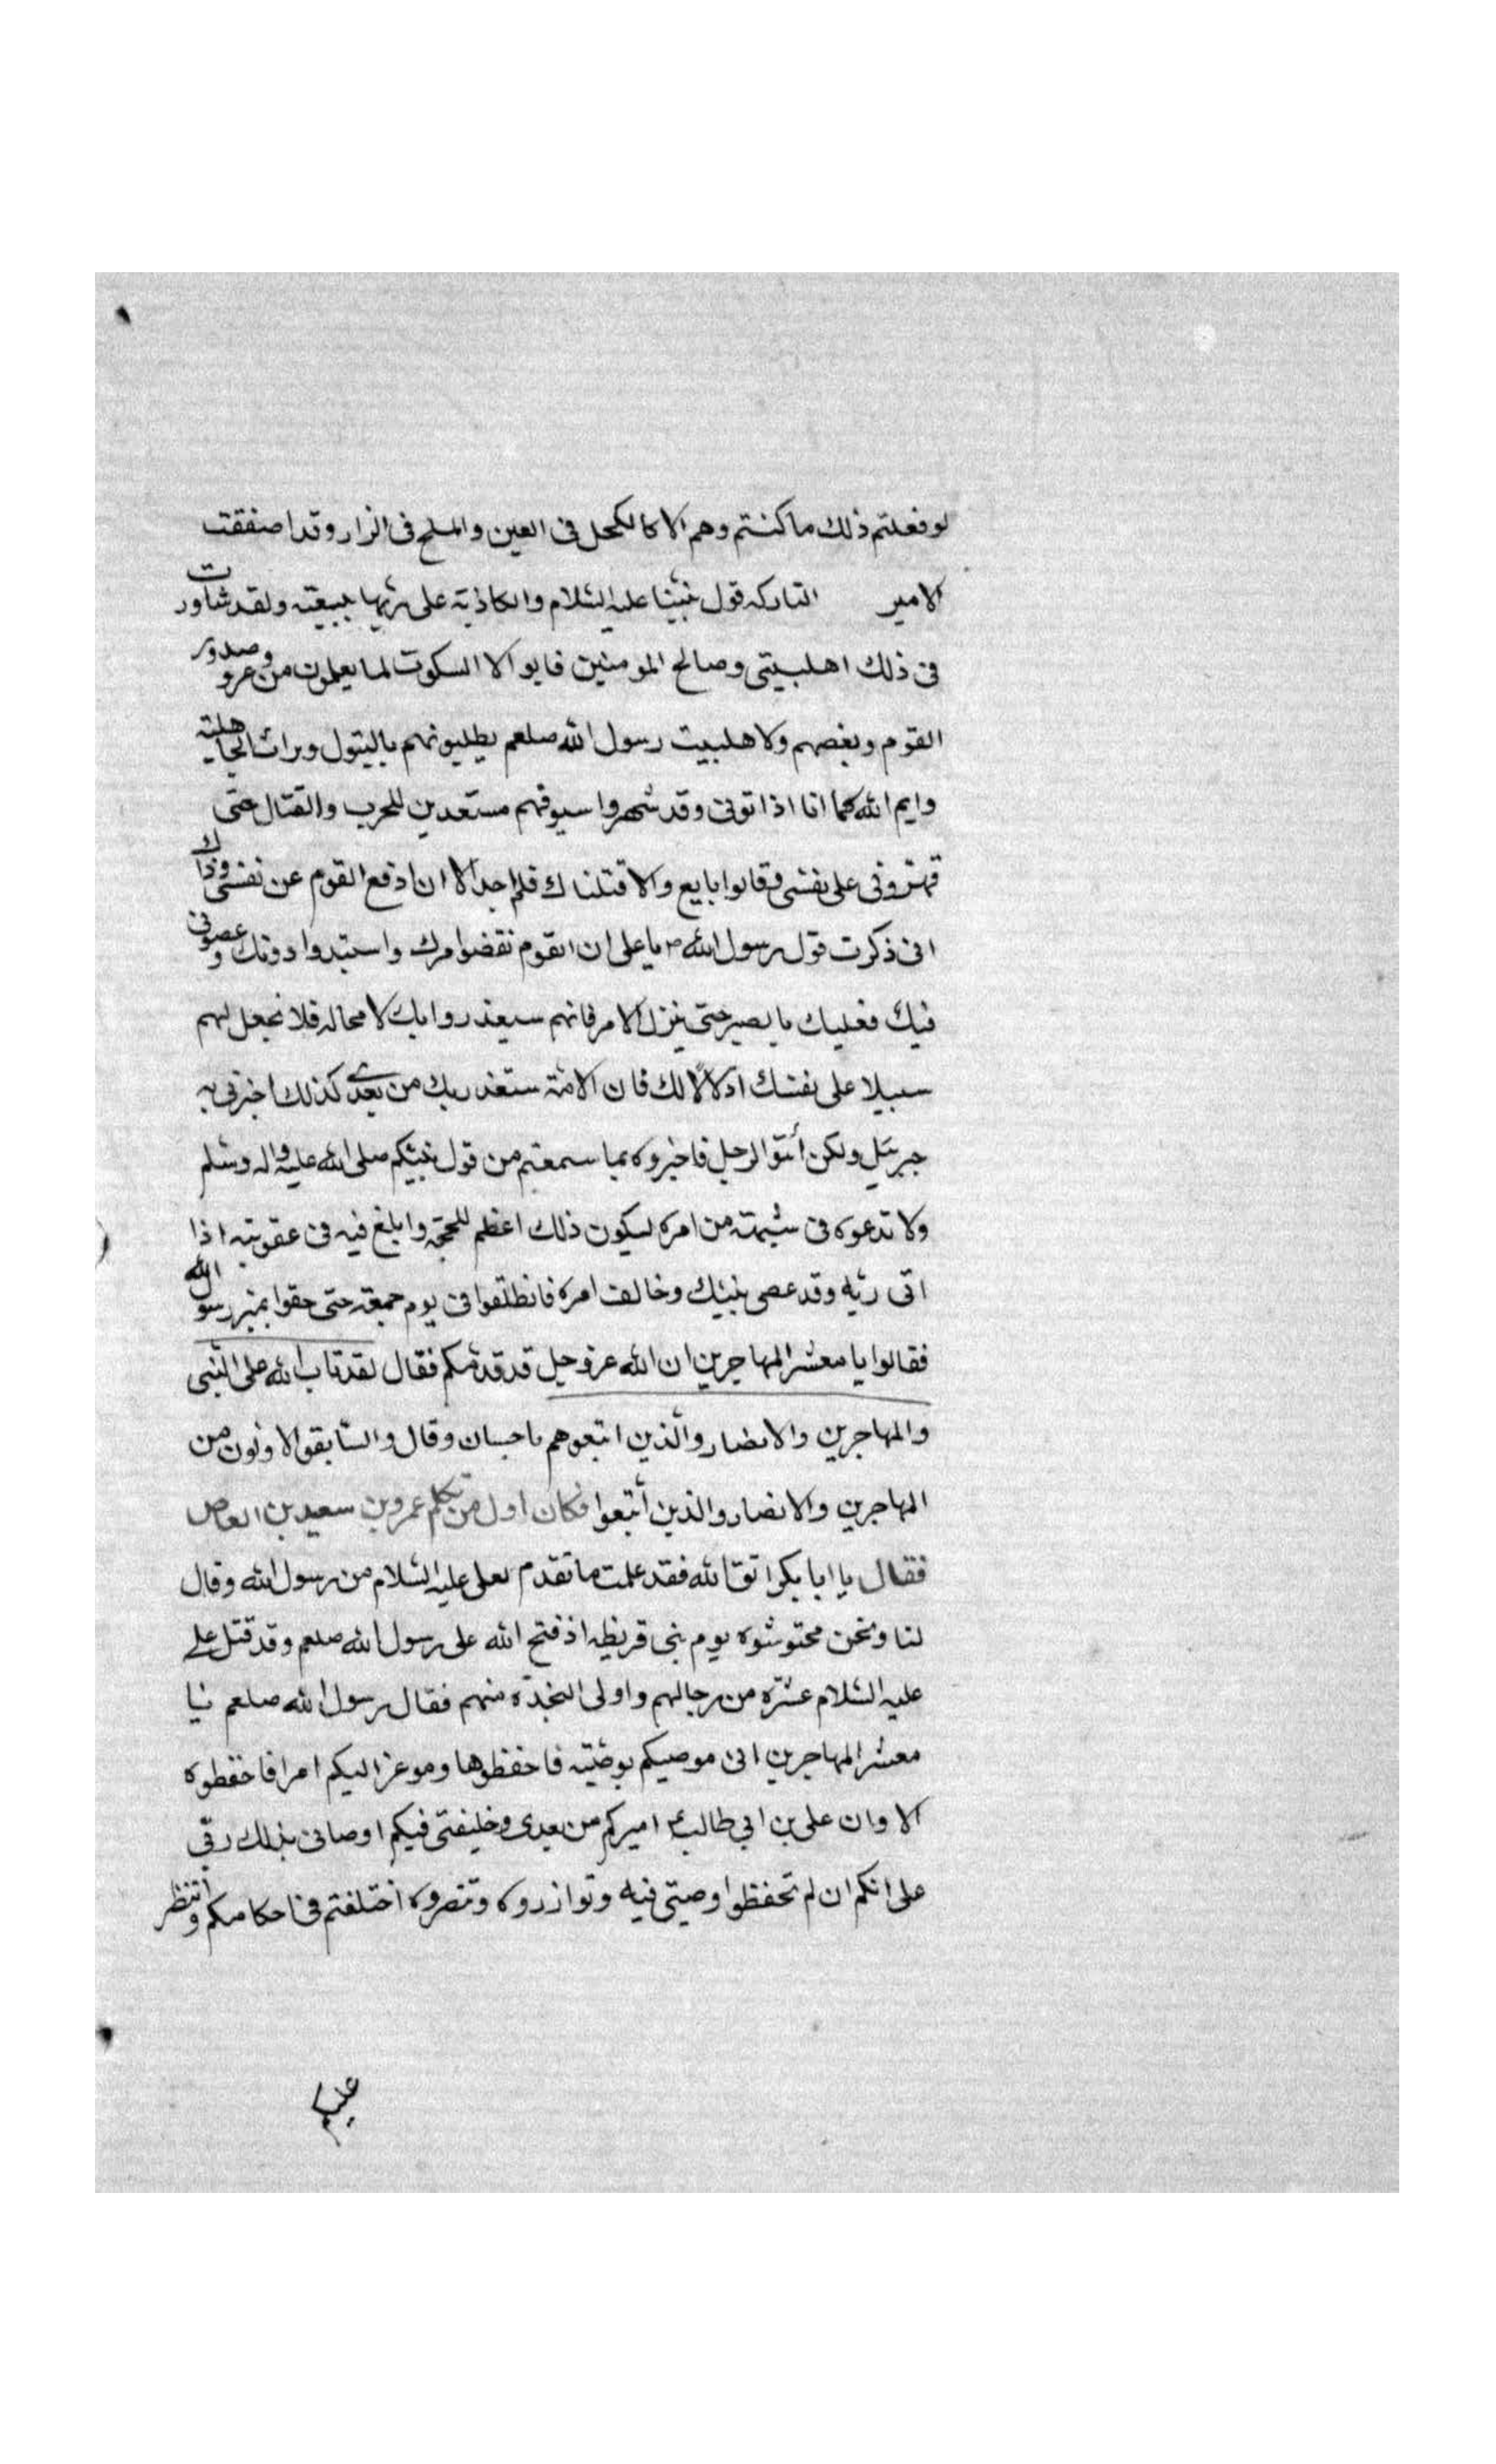 لو فعلتم ذلك ما كنتم وهم الا كالكحل فى العين والملح فى الزار وقد اصفقت
الامير التاركه قول نبيّنا عليه السّلام والكاذبة على ربّها ببيعته ولقد شاورت
فى ذلك اهلبيتى وصالح المومنين فابوا الا السكوت لما يعلمون من وصدور
القوم وبغضهم ولاهلبيت رسول الله صلعم يطلبونهم
وايم الله كما انا اذا تونى وقد شهروا سيوفهم مستعدين للحرب والقتال حتى
قهرونى على نفسى وقالوا بايع والا قتلناك فلم اجد الا ان ادفع القوم عن نفسى وذاك
انى ذكرت قول رسول الله ص يا على ان القوم نقضوا مرك واستبدوا دونك وعصونى
فيك فعليك بالصبر حتى ينزل الامر فانهم سيغدروا بك لا محاله فلا تجعل لهم
سبيلا على نفسك اذلالا لك فان الامّة ستغدر بك من بعدى كذلك اخبرنى به
جبرئيل ولكن أئتوا الرجل فاخبروه بما سمعتم من قول نبيّكم صلى الله عليه واله وسلم
ولا تدعوه فى شبهة من امره ليكون ذلك اعظم للحجّه وابلغ فيه فى عقوبته اذا
اتى ربّه وقد عصى نبيّك وخالف امره فانطلقوا فى يوم جمعة حتى حفوا بمنبر رسول الله
فقالوا يا معشر المهاجرين ان الله عز وجل قد قدمكم فقال لقد تاب الله على النّبى
والمهاجرين والانصار والّذين اتبعوهم باحسان وقال والسّابقوا الاوّلون من
المهاجرين والانصار والذين أتبعوا فكان اول من تكلم عمرو بن سعيد بن العاص
فقال يا ابا بكر اتق الله فقد علمت ما تقدم لعلى عليه السّلام من رسول الله وقال
لنا ونحن محتوشوه يوم بنى قريظه اذ فتح الله على رسول الله صلعم وقد قتل على
عليه السّلام عشرة من رجالهم واولى النجدة منهم فقال رسول الله صلعم
معشر المهاجرين انى موصيكم بوصيّة فاحفظوها وموعز اليكم امرا فاحفظوه
الا وان على بن ابي طالب ع اميركم من بعدى وخليفتى فيكم اوصانى بذلك ربّى
على انكم ان لم تحفظوا وصيتى فيه وتوازروه وتنصروه اختلفتم فى احكامكم
عليكم